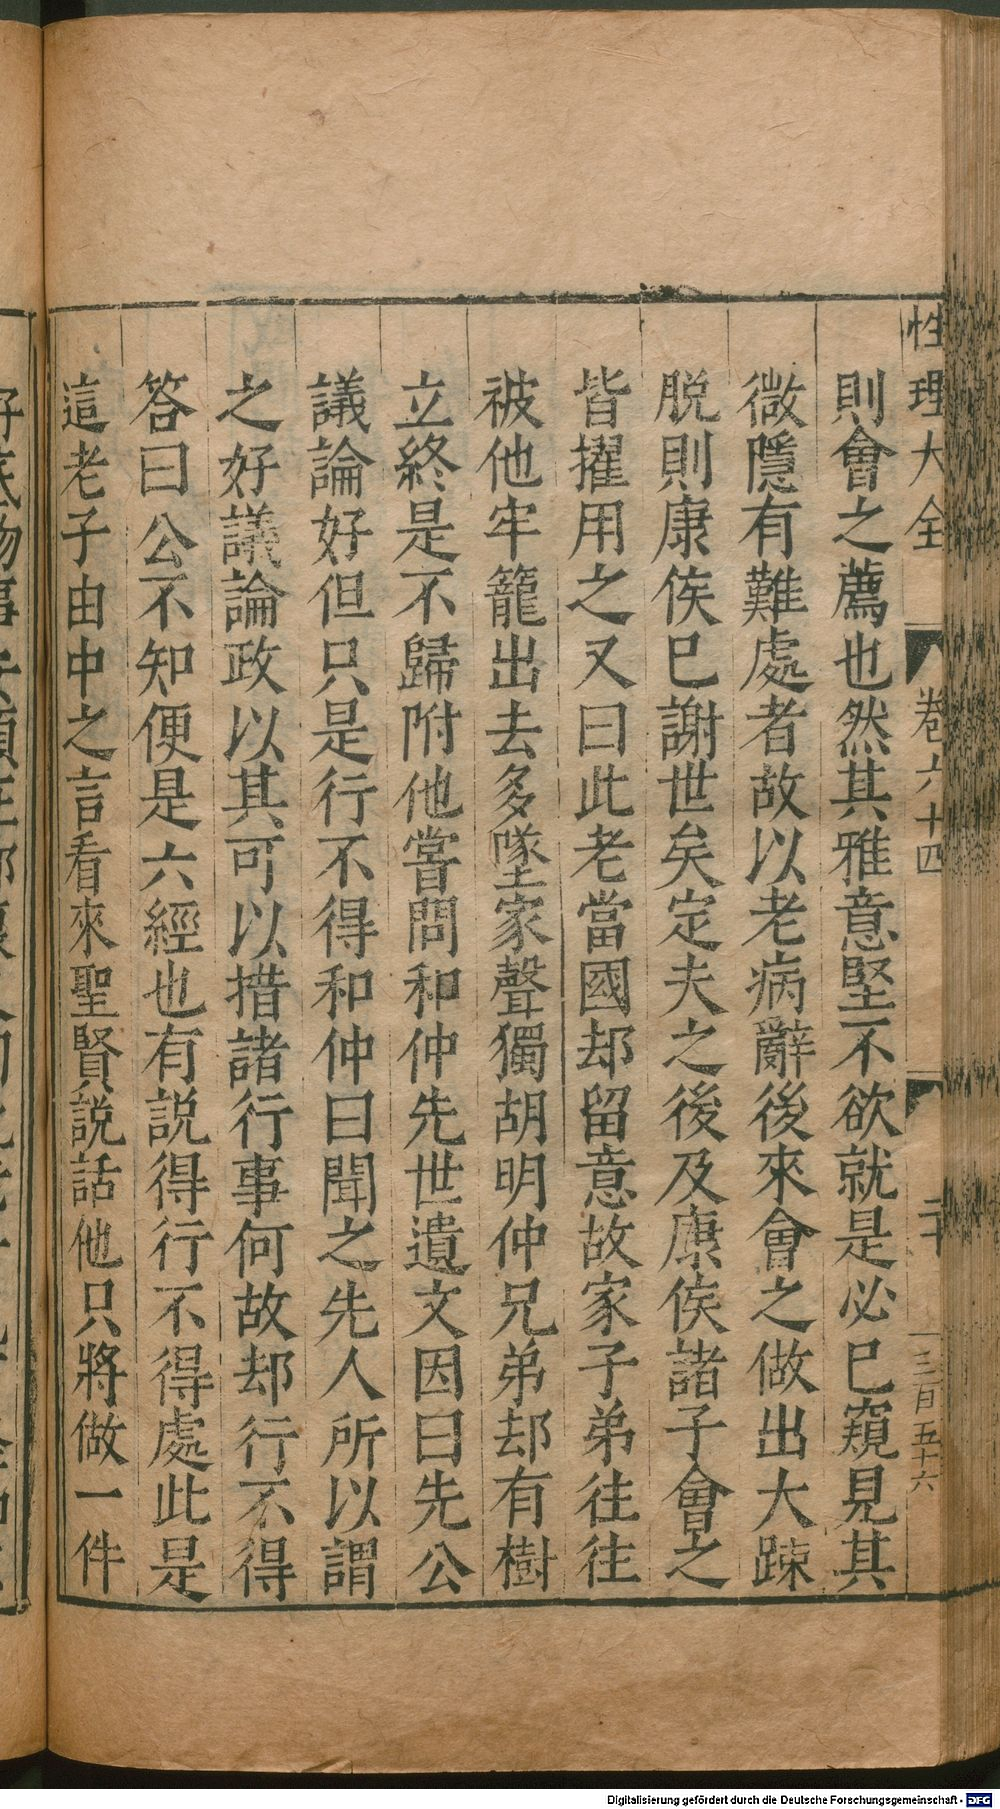 性理大全 卷六十四 二十 三百五十六
則會之薦也然其雅意堅不欲就是必已窺見其
微隱有難處者故以老病辭後來會之做出大踈
脫則康侯已謝世矣定夫之後及康侯諸子會之
皆擢用之又曰此老當國却留意故家子弟往往
被他牢籠出去多墜家聲獨胡明仲兄弟却有樹
立終是不歸附他嘗問和仲先世遺文因曰先公
議論好但只是行不得和仲曰聞之先人所以謂
之好議論政以其可以措諸行事何故却行不得
答曰公不知便是六經也有説得行不得處此是
這老子由中之言看來聖賢説話他只將做一件
Digitalisierung gefördert durch die Deutsche Forschungsgemeinschaft - DFG